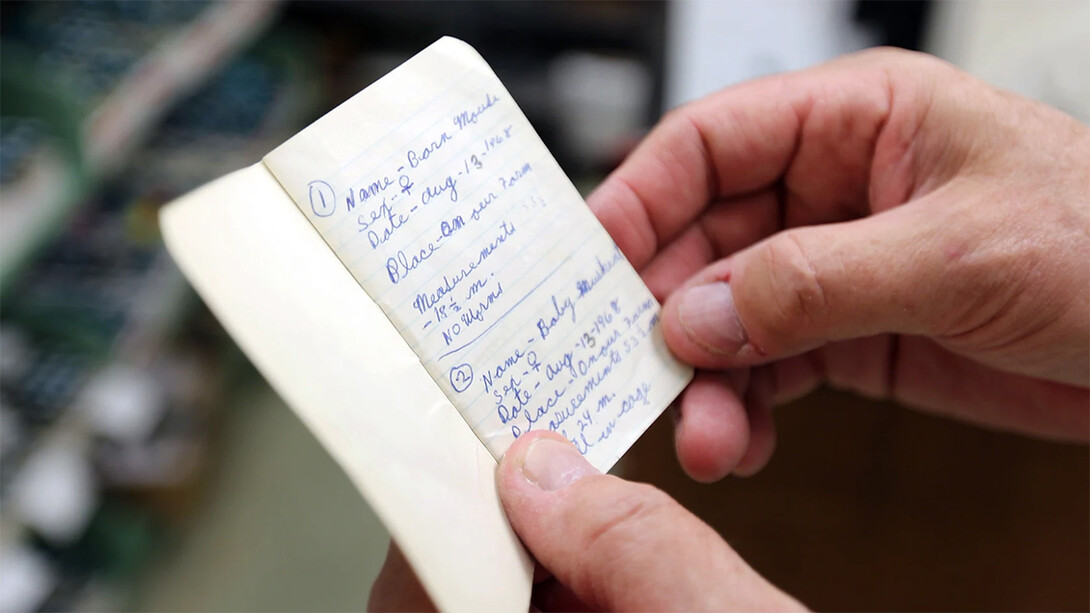 ① Name - Barn Mouse
Sex - ♀
Date - Aug - 13 - 1968
Place - On our Farm
Measurements
- 18 ½ m.
No Worms
② Name - Baby
Sex - ♀
Date - Aug - 13 - 1968
Place - On our Farm
asurements
24 m.
in cage